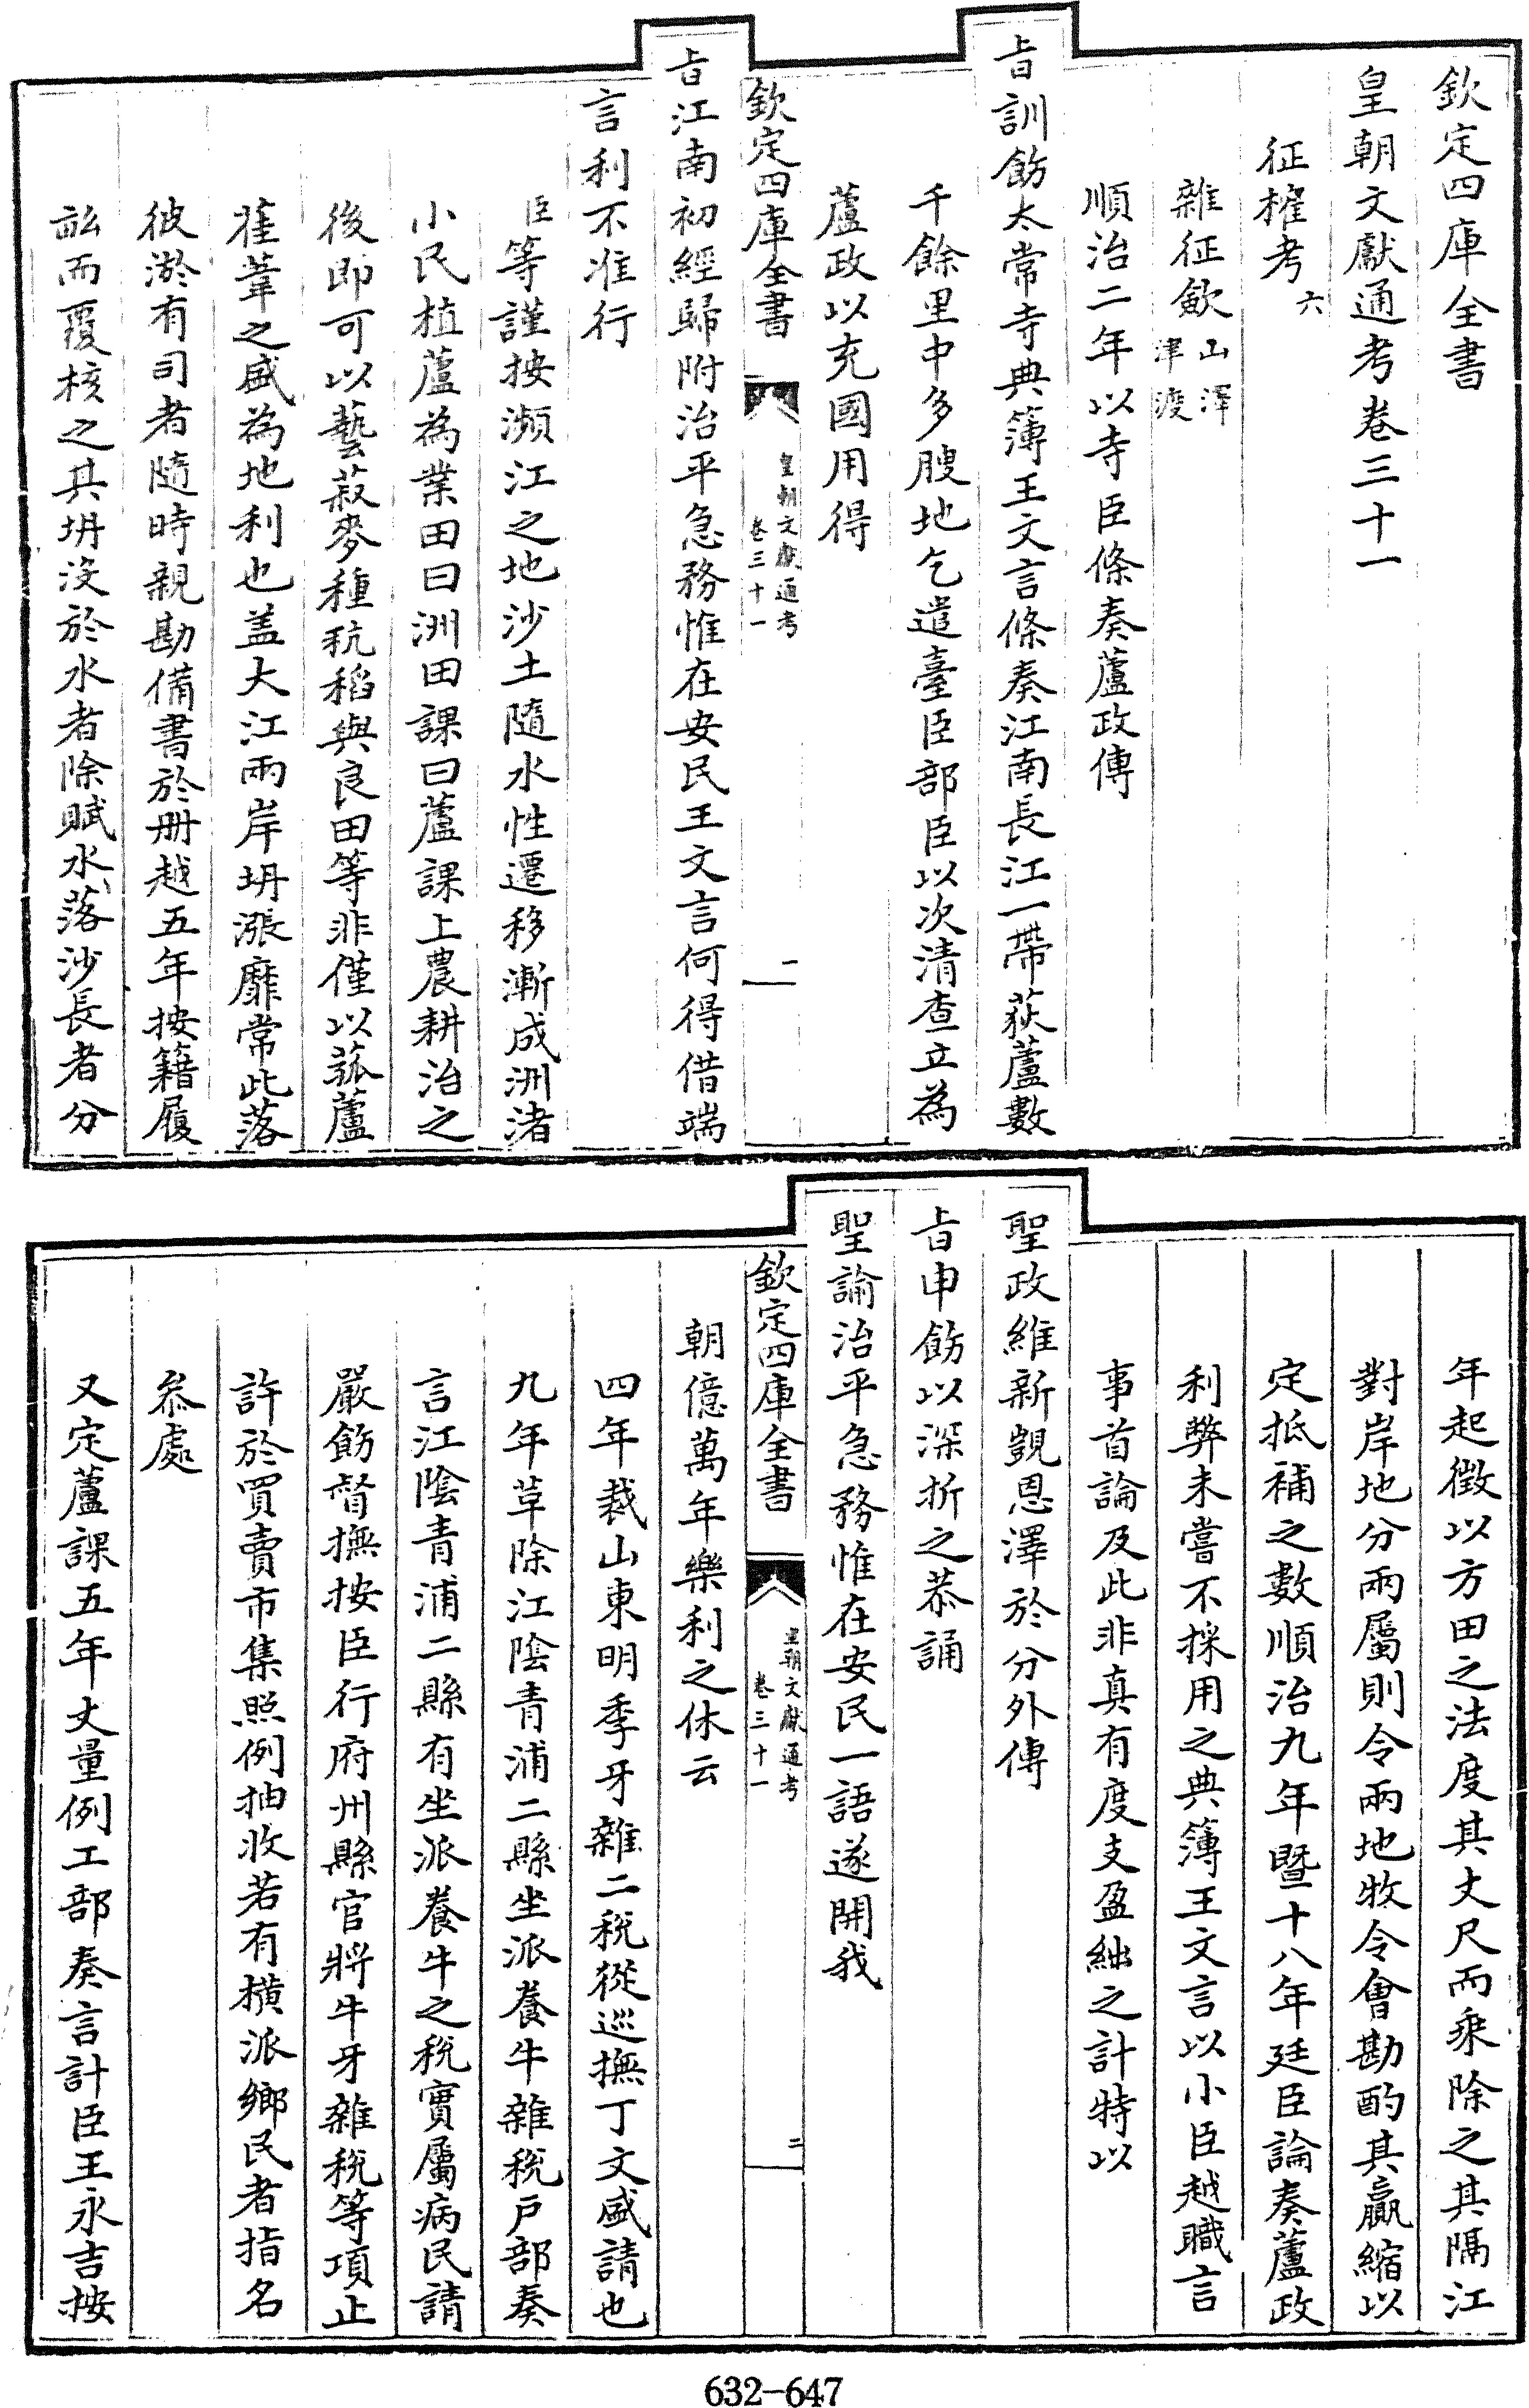 欽定四庫全書
皇朝文獻通考卷三十一
征榷考六
雜征歛山澤津渡
順治二年以寺臣條奏蘆政傳
旨訓飭太常寺典簿王文言條奏江南長江一帶荻蘆數
千餘里中多腴地乞遣臺臣部臣以次清查立為
蘆政以充國用得
欽定四庫全書
皇朝文獻通考
卷三十一
一
旨江南初經歸附治平急務惟在安民王文言何得借端
言利不准行
臣等謹按瀕江之地沙土隨水性遷移漸成洲渚
小民植蘆為業田曰洲田課曰蘆課上農耕治之
後即可以藝菽麥種秔稻與良田等非僅以菰蘆
萑葦之盛為地利也盖大江兩岸坍漲靡常此落
彼淤有司者隨時親勘備書於册越五年按籍履
畝而覆核之其坍没於水者除賦水落沙長者分
年起徵以方田之法度其丈尺而乘除之其隔江
對岸地分兩屬則令兩地牧令會勘酌其贏縮以
定抵補之數順治九年暨十八年廷臣論奏蘆政
利弊未嘗不採用之典簿王文言以小臣越職言
事首論及此非真有度支盈絀之計特以
聖政維新覬恩澤於分外傳
旨申飭以深折之恭誦
聖論治平急務惟在安民一語遂開我
欽定四庫全書
皇朝文獻通考
卷三十一
二
朝億萬年樂利之休云
四年裁山東明季牙雜二税從巡撫丁文盛請也
九年草除江陰青浦二縣坐派養牛雜税户部奏
言江陰青浦二縣有坐派養牛之税實屬病民請
嚴飭督撫按臣行府州縣官將牛牙雜税等項止
許於買賣市集照例抽收若有横派鄉民者指名
叅處
又定蘆課五年丈量例工部奏言計臣王永吉按
632-647